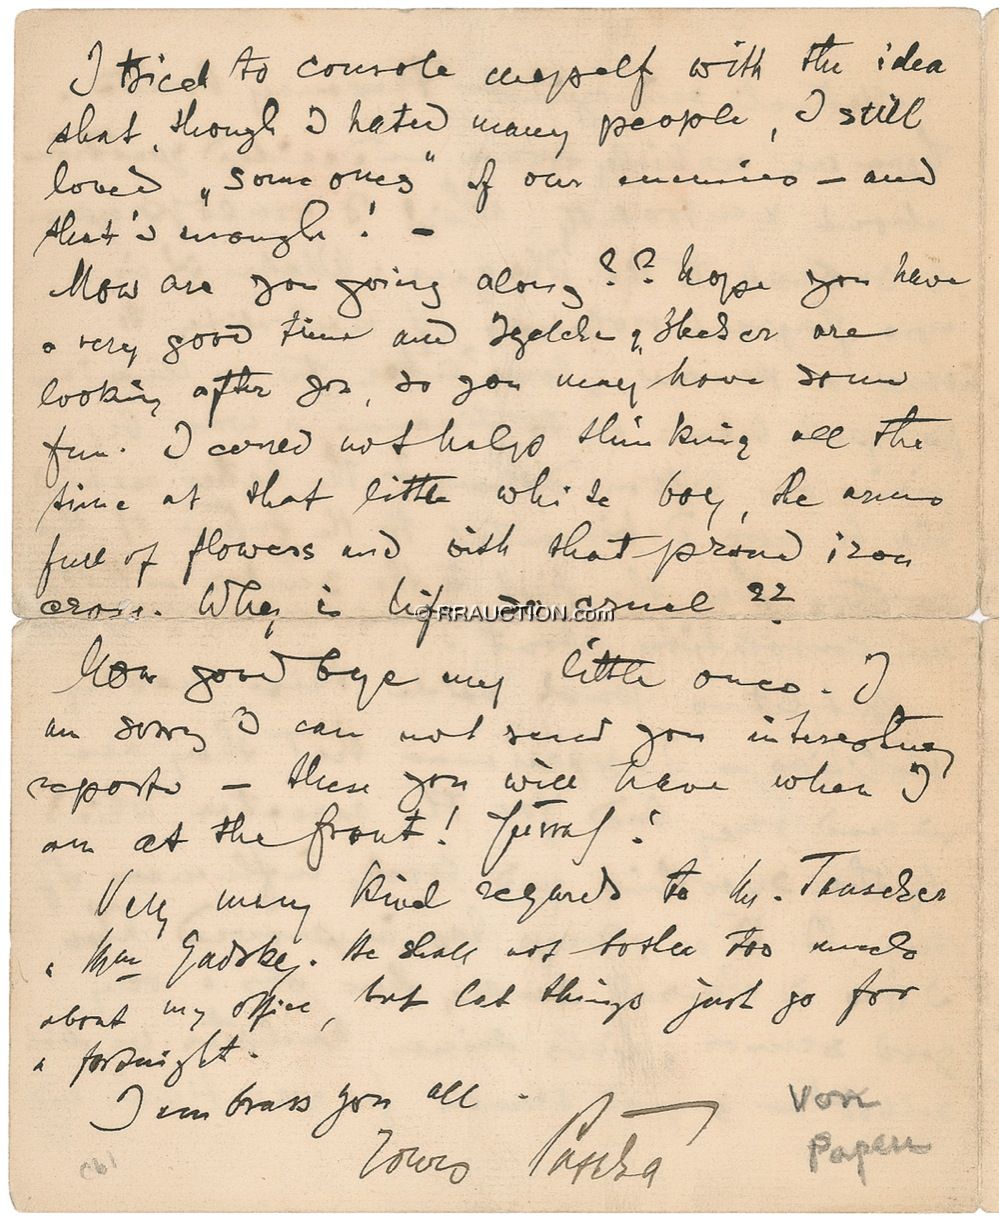 I tried to console myself with the idea
that, though I hated many people, I still
loved „some ones" of our enemies – and
that's enough! –
How are you going along?? hope you have
a very good time and & are
looking after you, so you may have some
fun. I coued not help thinking all the
time at that little white boy, the arms
full of flowers and with that proud iron
cross. Why is life so cruel??
Now good bye my little ones. I
am sorry I can not send you interesting
reports – these you will have when I
am at the front! Hurrah!
Very many kind regards to Mr. Tauscher
& Mme Gadsky. He shall not bother too much
about my office, but let things just go for
a fortnight.
I embrass you all.
Yours Pascha
Von
Papen
© RRAUCTION.com